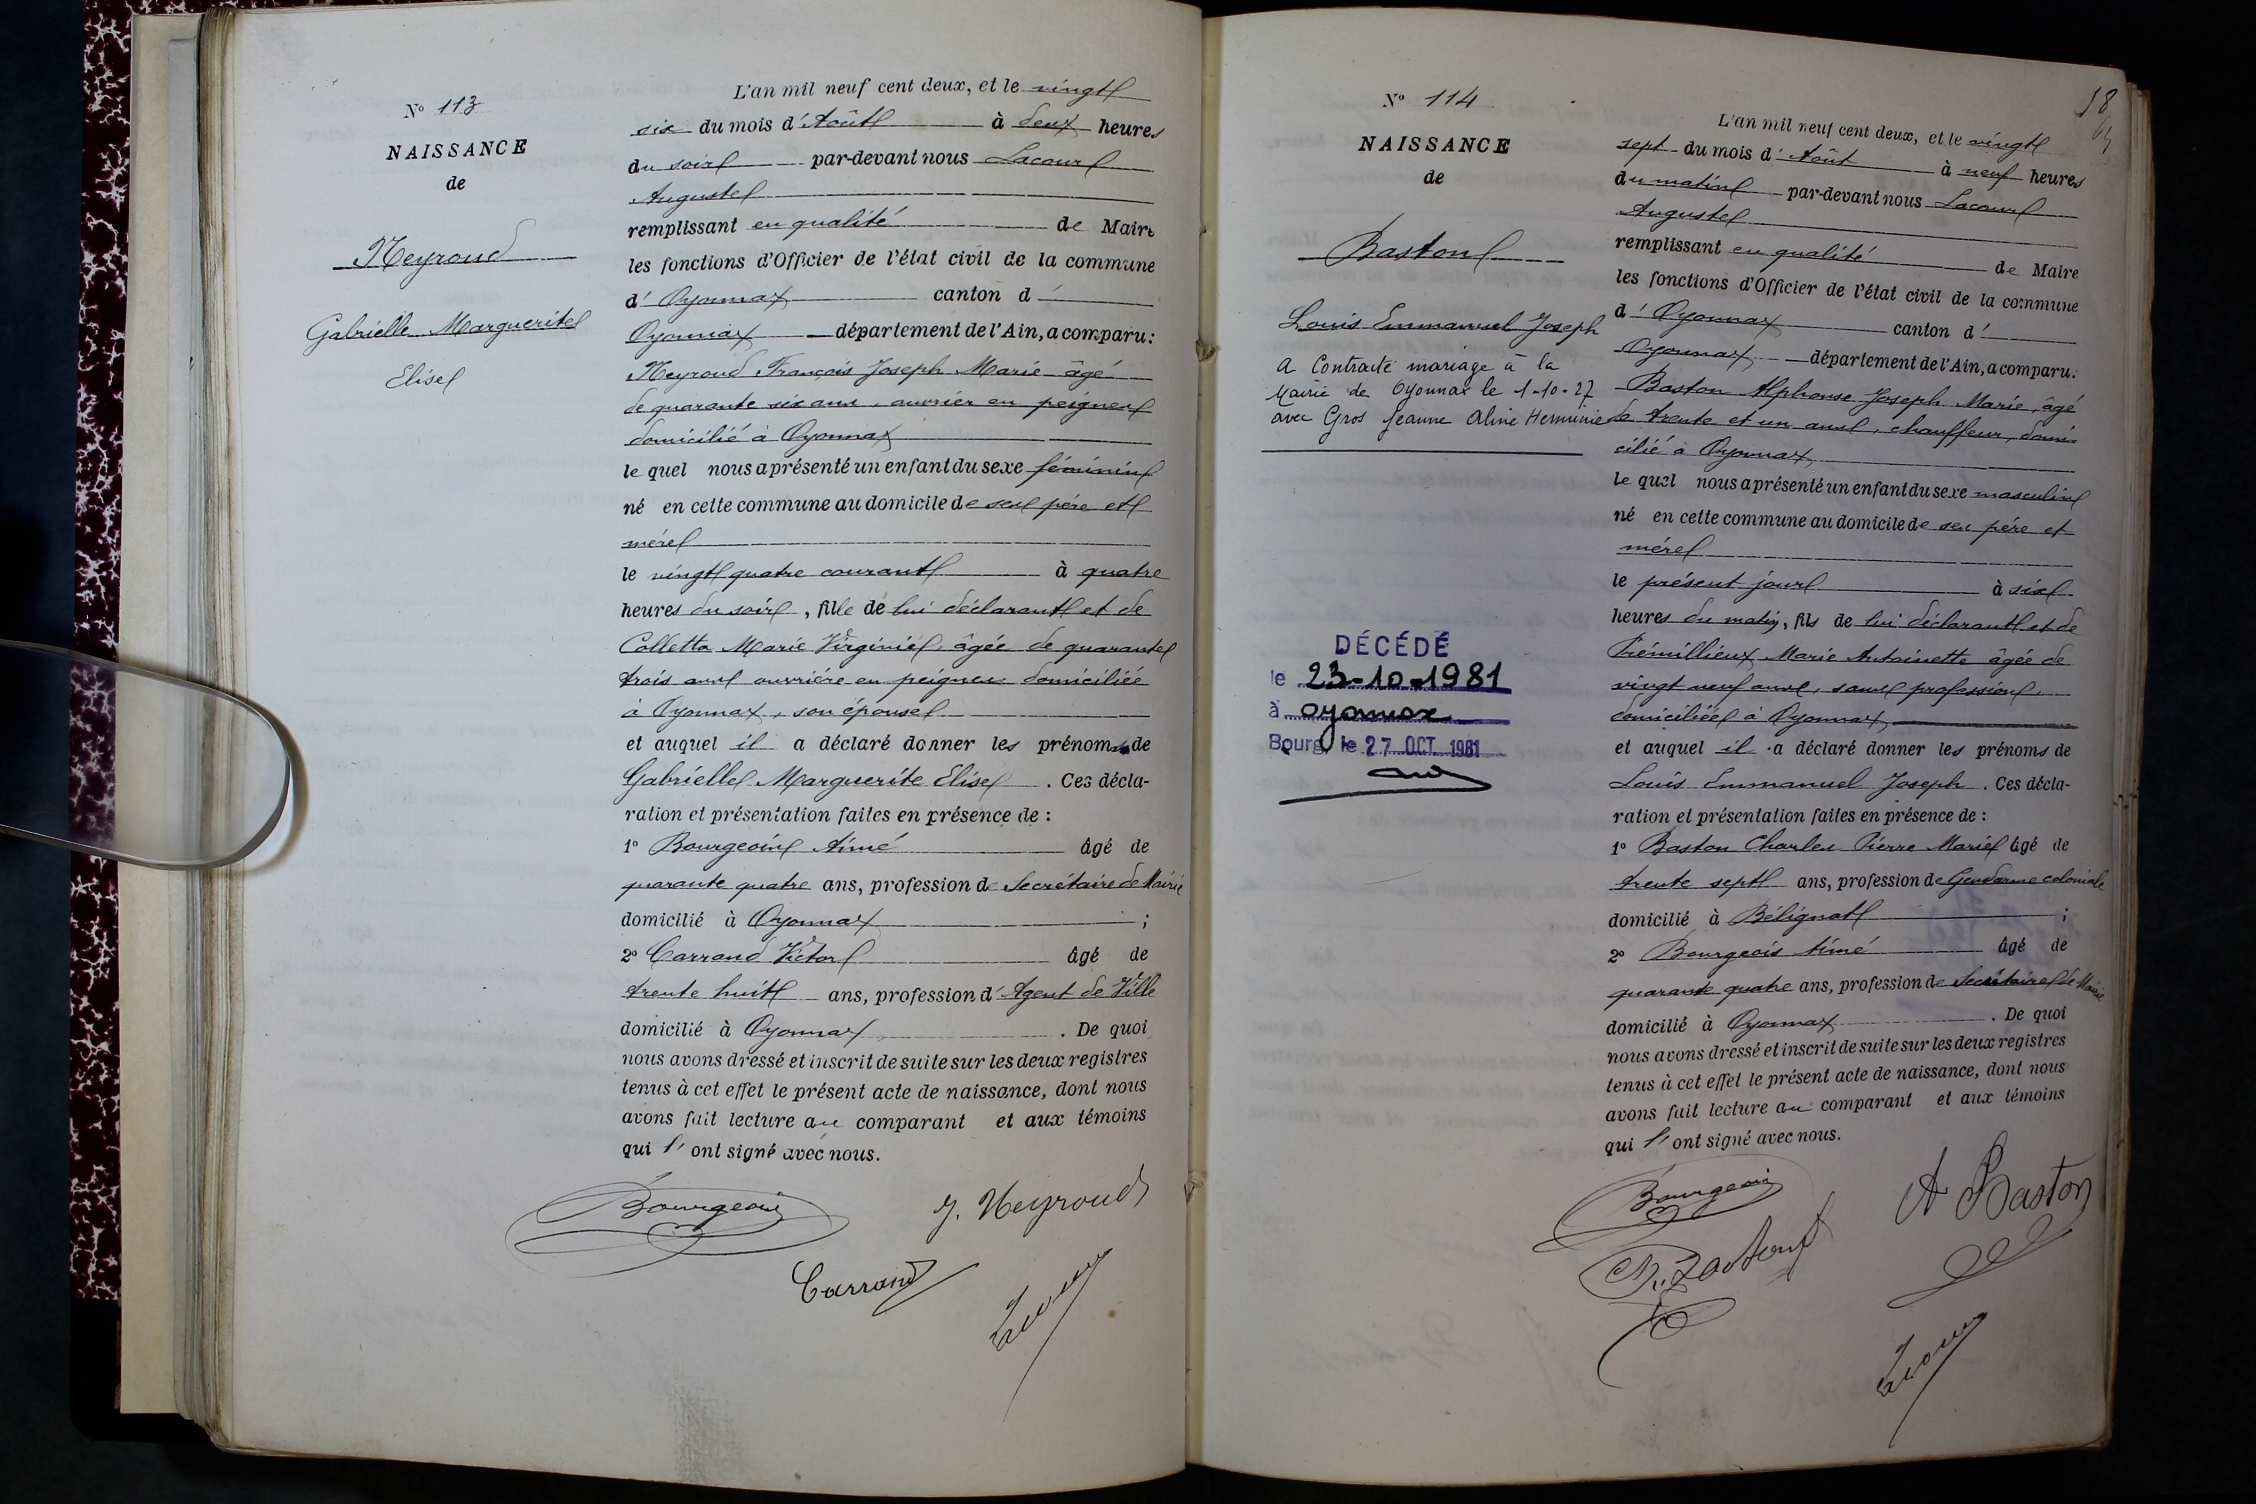 N° 113
NAISSANCE
de
Neyroud
Gabrielle Marguerite
Elise
L'an mil neuf cent deux, et le vingt
six du mois d'Août à deux heures
du soir par-devant nous Lacour
Auguste
remplissant en qualité de Maire
les fonctions d'Officier de l'état civil de la commune
d' Oyonnax canton d'
Oyonnax département de l'Ain, a comparu:
Neyroud François Joseph Marie âgé
de quarante six ans, ouvrier en peignes
domicilié à Oyonnax
le quel nous a présenté un enfant du sexe féminin
né en cette commune au domicile de ses père et
mère
le vingt quatre courant à quatre
heures du soir, fille de lui déclarant et de
Colletta Marie Virginie, âgée de quarante
trois ans ouvrière en peignes domiciliée
à Oyonnax, son épouse
et auquel il a déclaré donner les prénoms de
Gabrielle Marguerite Elise. Ces décla-
ration et présentation faites en présence de :
1° Bourgeois Aimé âgé de
quarante quatre ans, profession de Secrétaire de Mairie
domicilié à Oyonnax ;
2° Carrand Victor âgé de
trente huit ans, profession d'Agent de Ville
domicilié à Oyonnax. De quoi
nous avons dressé et inscrit de suite sur les deux registres
tenus à cet effet le présent acte de naissance, dont nous
avons fait lecture au comparant et aux témoins
qui l'ont signé avec nous.
Bourgeois
J. Neyroud
Carrand
Lacour
58
N° 114
NAISSANCE
de
Baston
Louis Emmanuel Joseph
a Contracté mariage à la
Mairie de Oyonnax le 1-10-27
avec Gros Jeanne Aline Herminie
DÉCÉDÉ
le 23-10-1981
à Oyonnax
Bourg, le 27 OCT. 1981
L'an mil neuf cent deux, et le vingt
sept du mois d'Août à neuf heures
du matin par-devant nous Lacour
Auguste
remplissant en qualité de Maire
les fonctions d'Officier de l'état civil de la commune
d' Oyonnax canton d'
Oyonnax département de l'Ain, a comparu:
Baston Alphonse Joseph Marie, âgé
de trente et un ans, chauffeur, domi
cilié à Oyonnax
le quel nous a présenté un enfant du sexe masculin
né en cette commune au domicile de ses père et
mère
le présent jour à six
heures du matin, fils de lui déclarant et de
Prémillieux Marie Antoinette âgée de
vingt neuf ans, sans profession,
domiciliée à Oyonnax
et auquel il a déclaré donner les prénoms de
Louis Emmanuel Joseph. Ces décla-
ration et présentation faites en présence de :
1° Baston Charles Pierre Marie âgé de
trente sept ans, profession de Gendarme coloniale
domicilié à Bélignat ;
2° Bourgeois Aimé âgé de
quarante quatre ans, profession de Secrétaire de Mairie
domicilié à Oyonnax. De quoi
nous avons dressé et inscrit de suite sur les deux registres
tenus à cet effet le présent acte de naissance, dont nous
avons fait lecture au comparant et aux témoins
qui l'ont signé avec nous.
Bourgeois
A Baston
Ch. Baston
Lacour